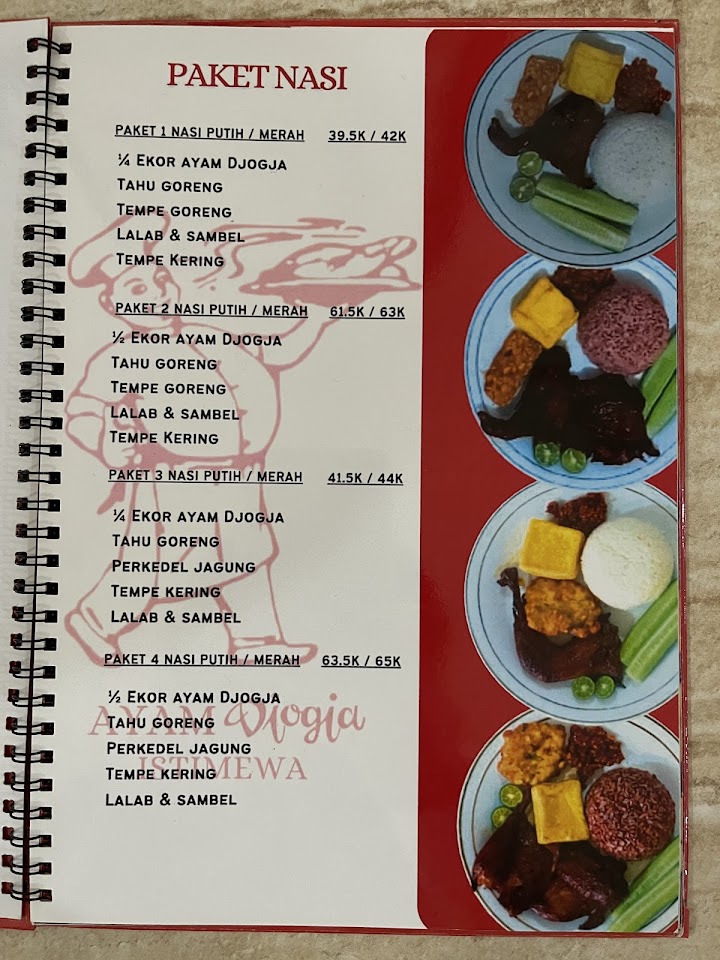 PAKET NASI
PAKET 1 NASI PUTIH / MERAH 39.5K / 42K
¼ EKOR AYAM DJOGJA
TAHU GORENG
TEMPE GORENG
LALAB & SAMBEL
TEMPE KERING
PAKET 2 NASI PUTIH / MERAH 61.5K / 63K
½ EKOR AYAM DJOGJA
TAHU GORENG
TEMPE GORENG
LALAB & SAMBEL
TEMPE KERING
PAKET 3 NASI PUTIH / MERAH 41.5K / 44K
¼ EKOR AYAM DJOGJA
TAHU GORENG
PERKEDEL JAGUNG
TEMPE KERING
LALAB & SAMBEL
PAKET 4 NASI PUTIH / MERAH 63.5K / 65K
½ EKOR AYAM DJOGJA
AYAM Djogja
TAHU GORENG
PERKEDEL JAGUNG
ISTIMEWA
TEMPE KERING
LALAB & SAMBEL